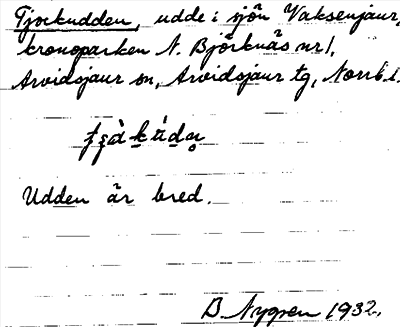 Tjockudden, udde i sjön Vaksenjaur,
kronoparken N. Björknäs nr 1,
Arvidsjaur sn, Arvidsjaur tg, Norrb. l.
Udden är bred.
B Nygren 1932.